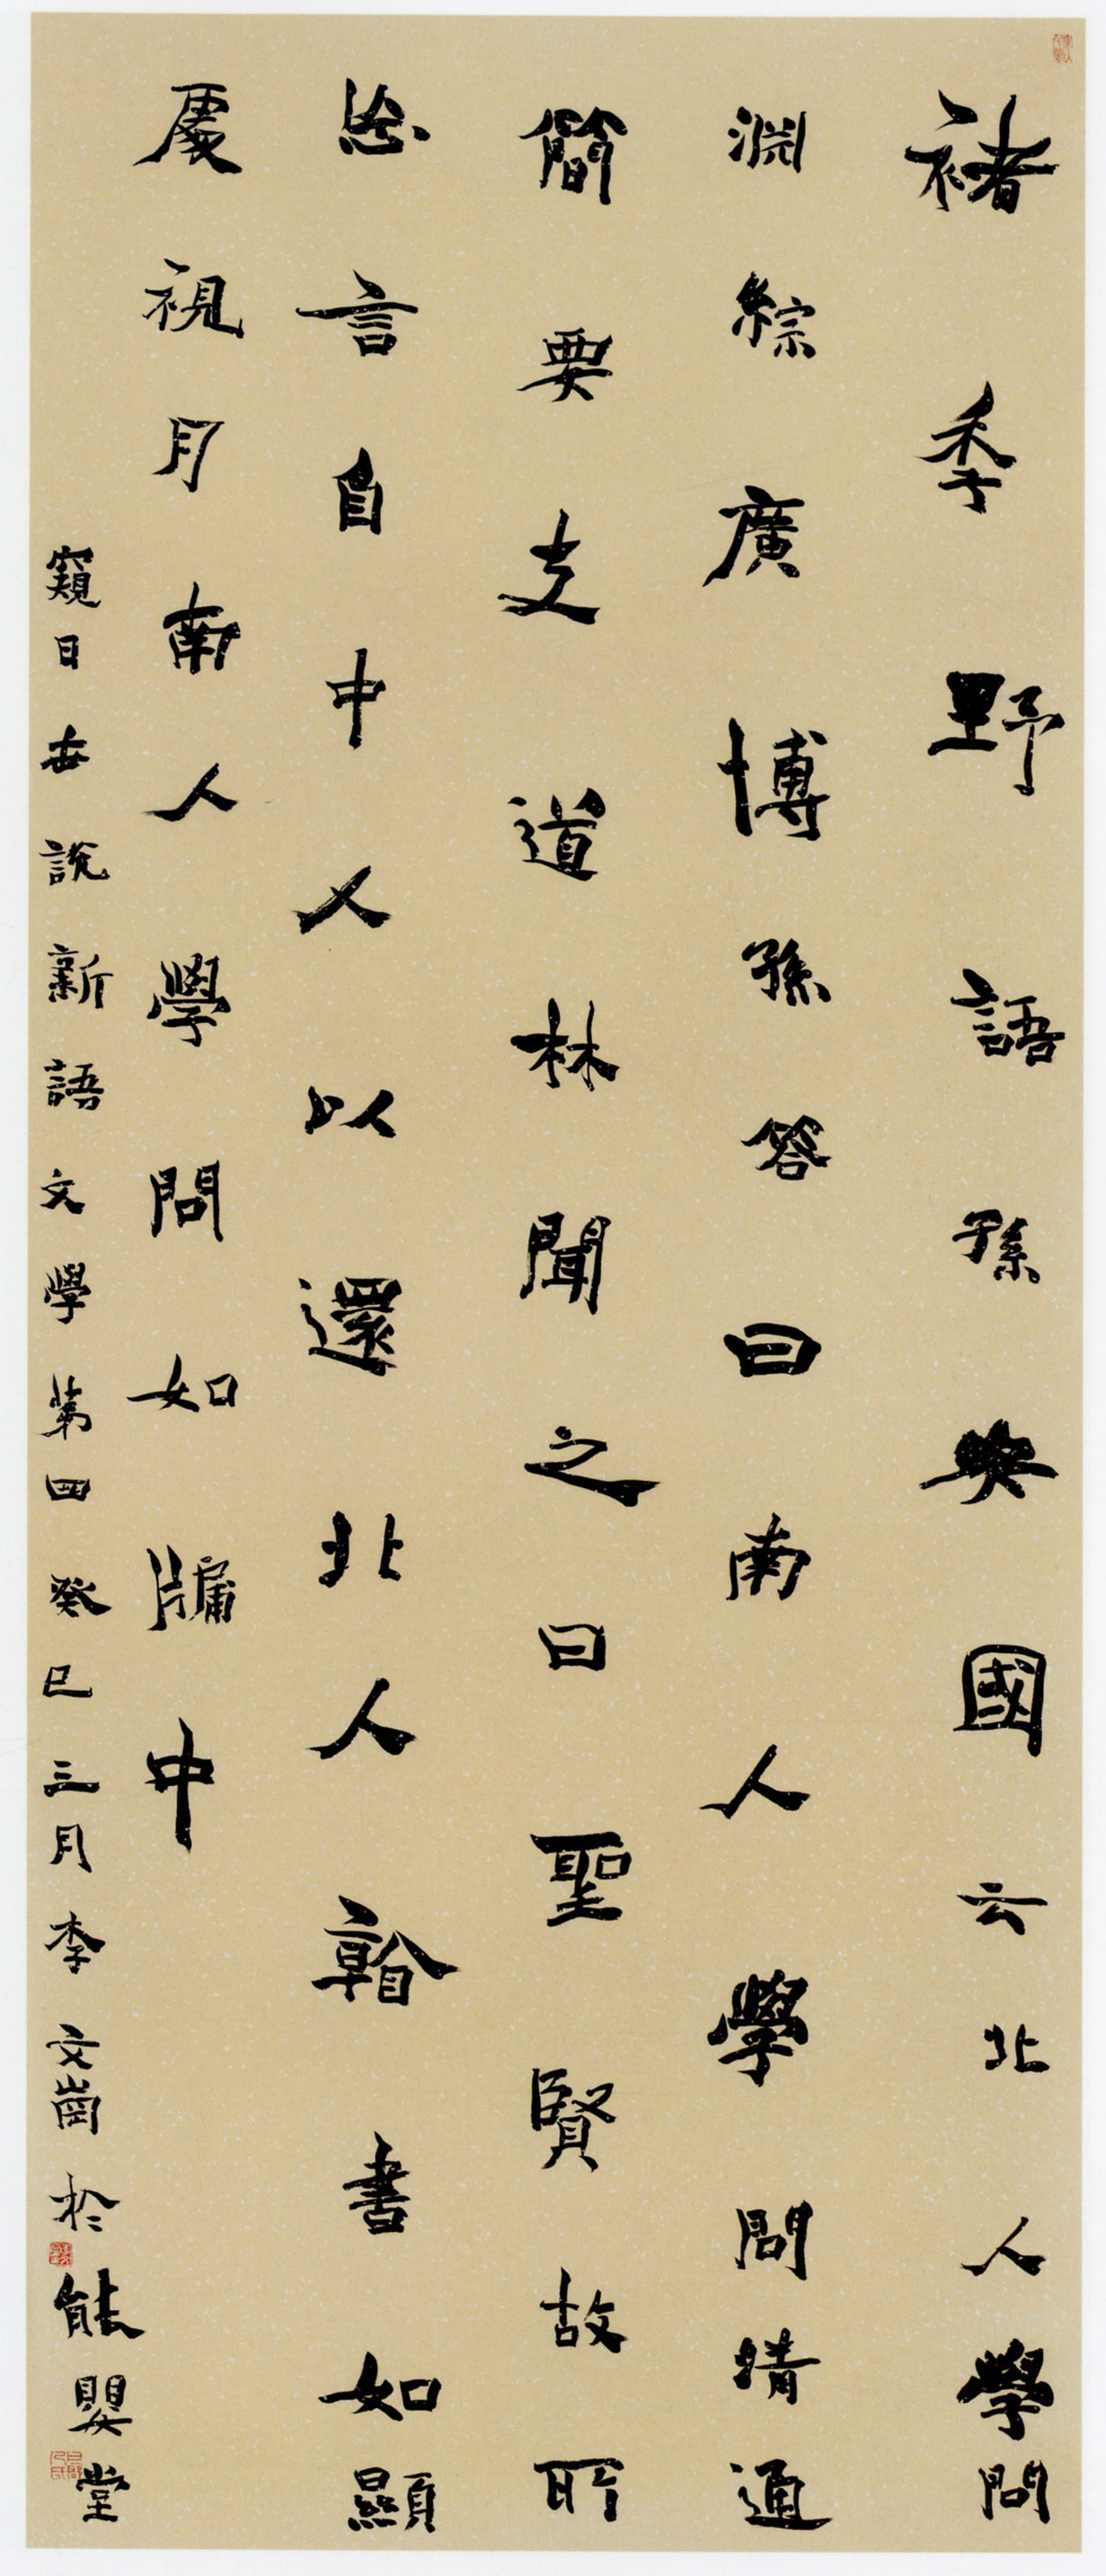 褚季野語孫安國云北人學問
淵綜廣博孫答曰南人學問清通
簡要支道林聞之曰聖賢故所
忘言自中人以還北人看書如顯
處視月南人學問如牖中
窺日世說新語文學第四癸巳三月李文崗於能嬰堂